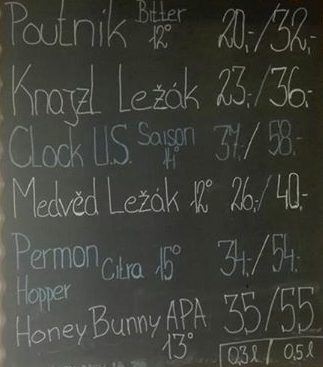 Poutník Bitter 12° 20,-/32,-
Knajzl Ležák 23,-/36,-
Clock U.S. Saison 14° 37,-/58,-
Medvěd Ležák 12° 26,-/40,-
Permon Citra 15° 34,-/54,-
Hopper
Honey Bunny APA 13° 35/55
0,3ℓ / 0,5ℓ